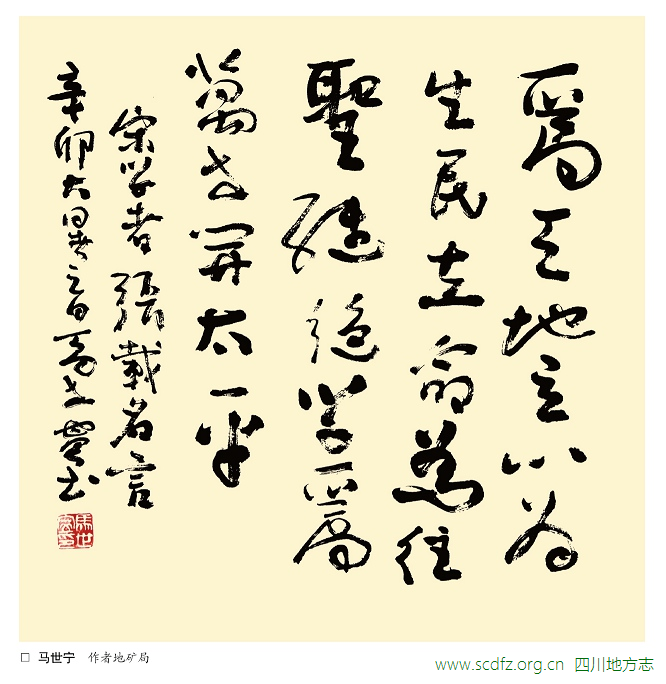 爲天地立心为
生民立命為往
聖繼絕学爲
萬世開太平
宋学者張載名言
辛卯大暑之日馬世寧书
□ 马世宁 作者地矿局
www.scdfz.org.cn 四川地方志